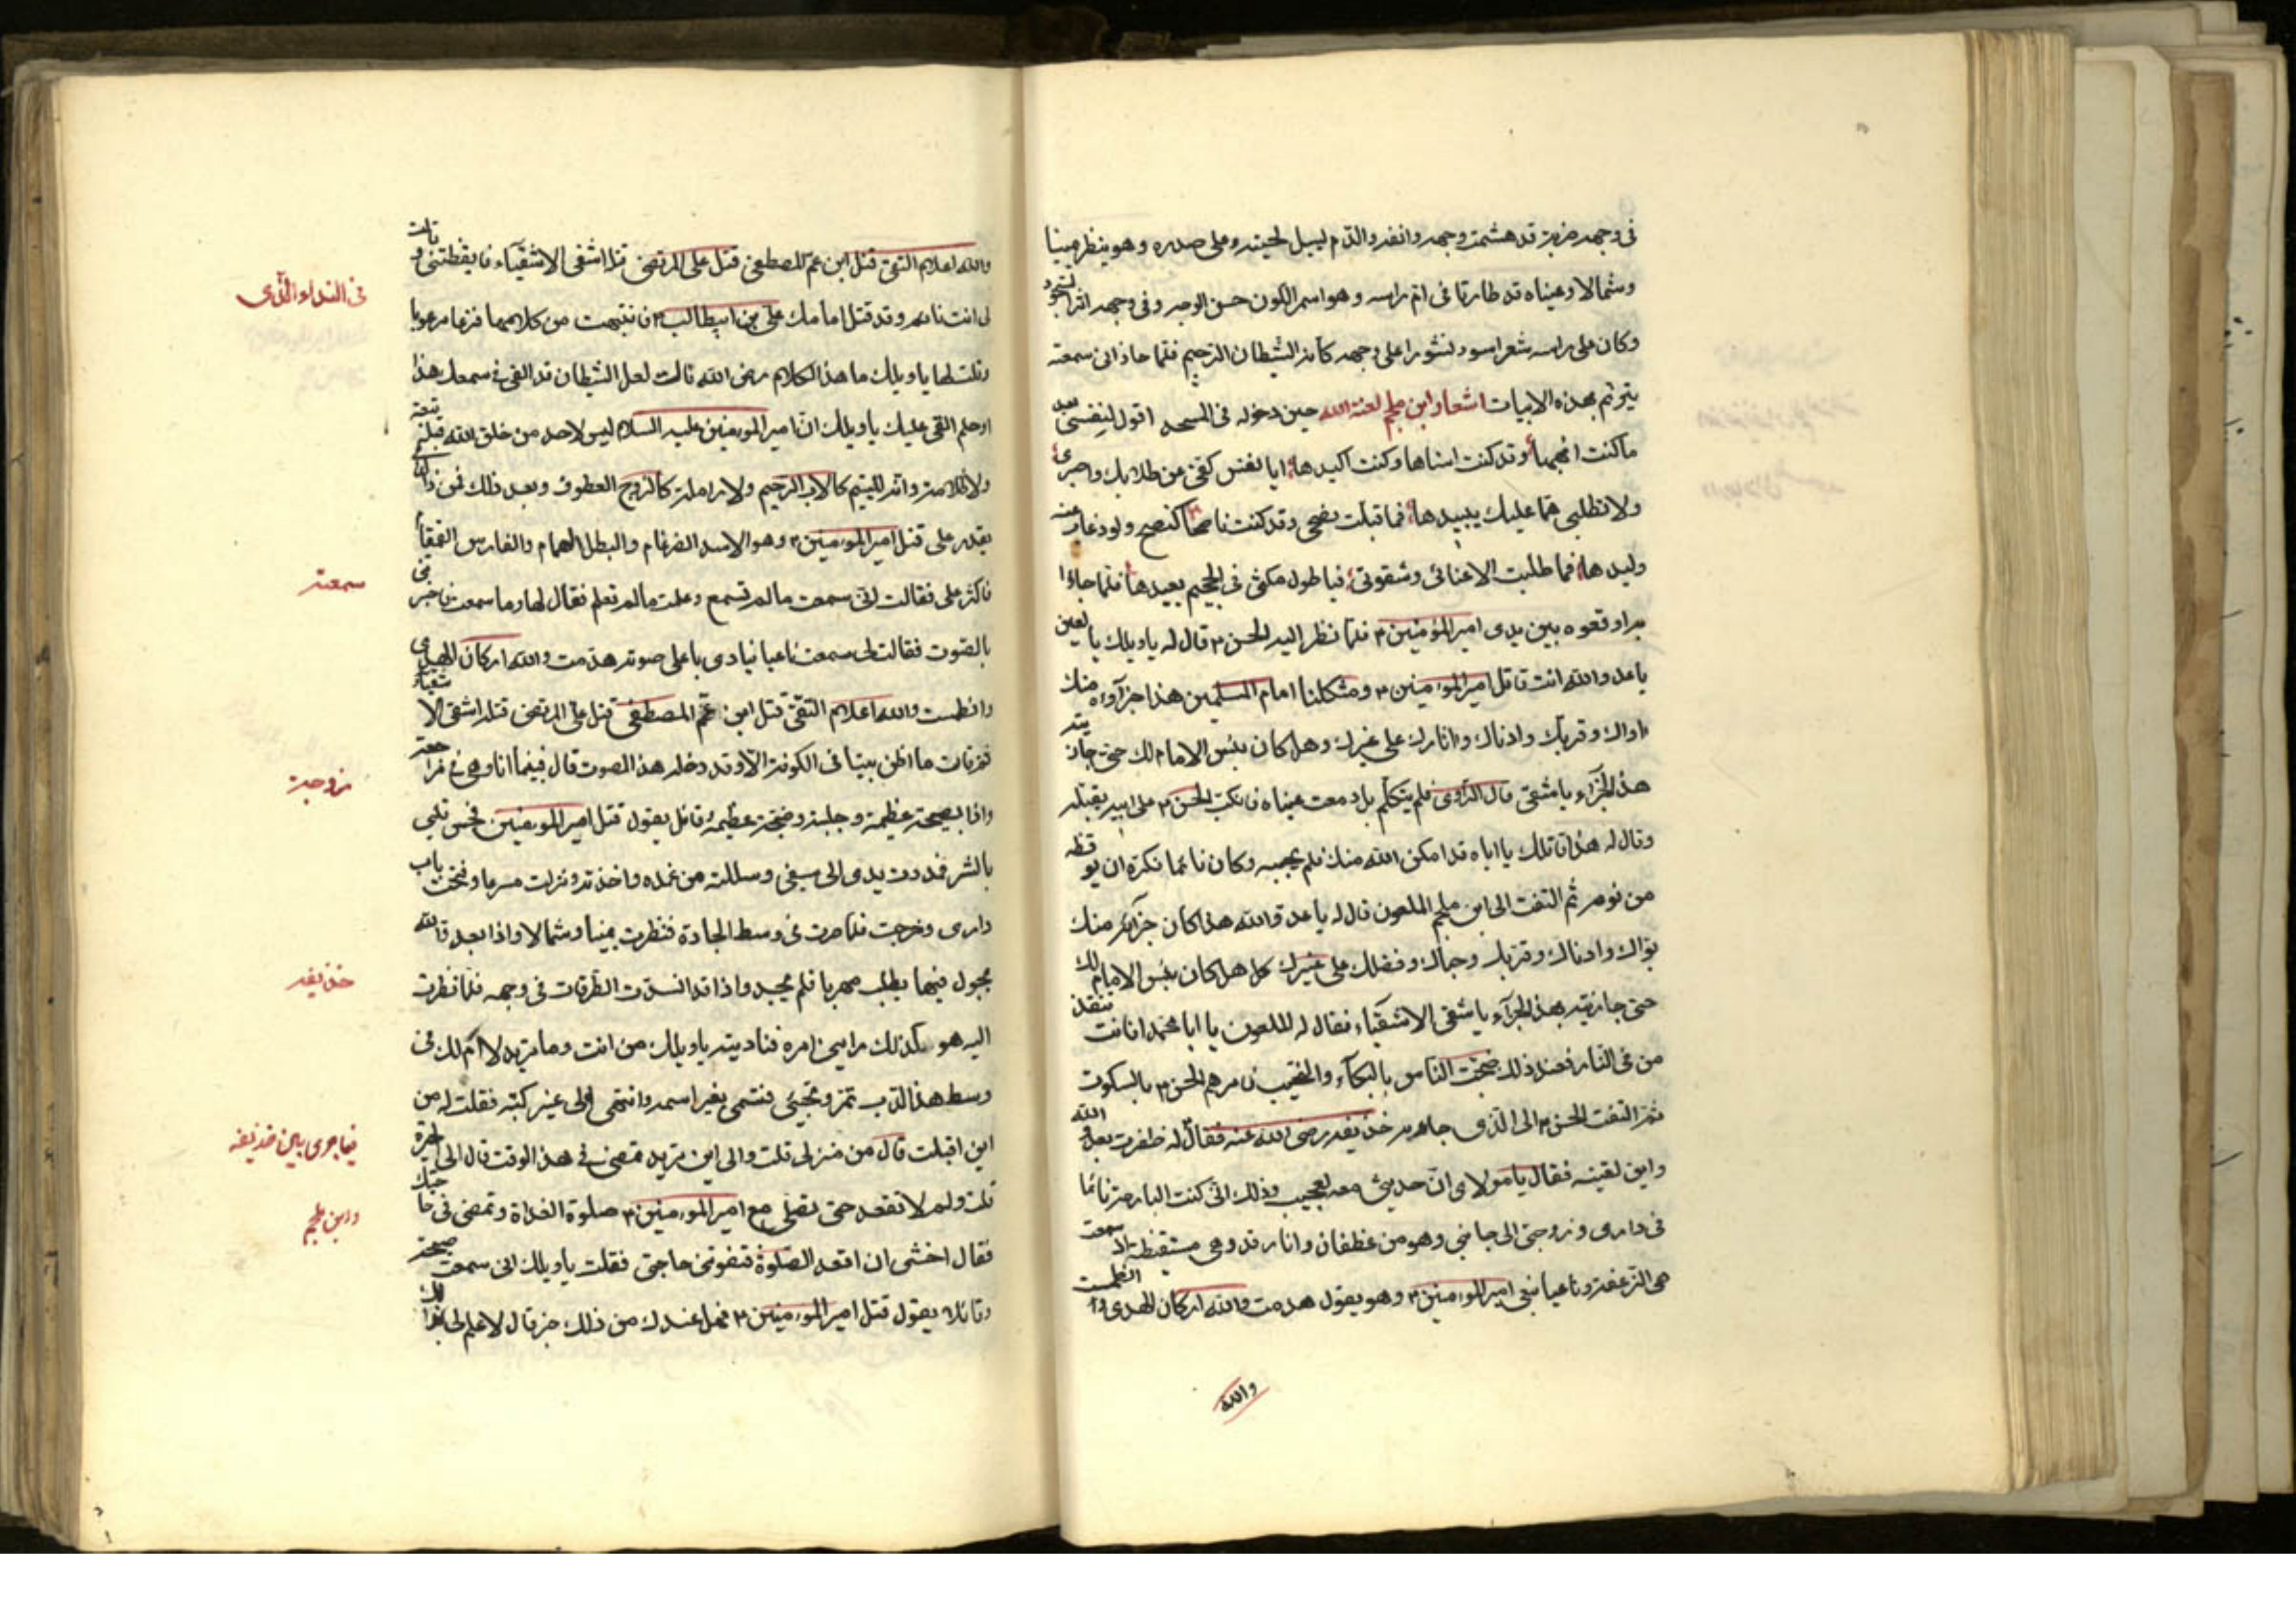 في وجهه ضربة قد هشمت وجهه وانفه والدّم ليسيل لحيته وعلى صدره وهو ينظر يمينا
وشمالا وعيناه قد طارتا في ام راسه وهو اسمر الكون حسن الوجه وفي وجهه اثر السجود
وكان على راسه شعر اسود منشورا على وجهه كانه الشيطان الرّجيم فلما حاذاني سمعته
يترنّم بهذه الابيات اشعار ابن ملجم لعنة الله حين دخوله في المسجد اقول لنفسي بعد
ما كنت انهيها وقد كنت اسناها وكنت اكيدها ايا نفس كفّي عن طلابك واصبري
ولا تطلبي همّا عليك يبيدها فما قبلت نصحي وقد كنت ناصحا كنصح ولود غاب عنه
وليدها فما طلبت الا عنائي وشقوتي فيا طول مكثي في الجحيم بعيدها فلما جاؤا
به اوقعوه بين يدى امير المؤمنين ع فلمّا نظر اليه الحسن ع قال له يا ويلك يا لعين
يا عدو الله انت قاتل امير المؤمنين ع ومثكلنا امام المسلمين هذا جزآؤه منك
اواك وقربك وادناك واثارك على غيرك وهل كان بئس الامام لك حتى جازيته
هذا الجزآء يا شقى قال الرّاوى فلم يتكلّم بل دمعت عيناه فانكب الحسن ع على ابيه يقبّله
وقال له هذا قاتلك يا اباه قد امكن الله منك فلم يجبه وكان نائما فكره ان يوقظه
من نومه ثم التفت الى ابن ملجم الملعون قال له يا عدو الله هذا كان جزآئه منك
بوّاك وادناك وقربك وحباك وفضلك على غيرك كل هل كان بئس الامام لك
حتى جازيته بهذا الجزآء يا شقي الاشقيآء فقال له الملعون يا ابا محمد افانت تنقذ
من في النّار فعند ذلك ضجّت الناس بالبكآء والنحيب فامرهم الحسن ع بالسكوت
ثم التفت الحسن ع الى الّذى جاء به حذيفه رضى الله عنه فقال له ظفرت بعدو الله
واين لقيته فقال يا مولاى انّ حديثي معه لعجيب وذلك انّي كنت البارحة نائما
في دارى وزوجتي الى جانبي وهو من غطفان وانا رقد وهي مستيقظة اذ سمعت
هى الزعقة وناعيا ينعي امير المؤمنين ع وهو يقول هدمت والله اركان الهدى وانطمست
والله
والله اعلام التقىّ قتل ابن عمّ المصطفى قتل على المرتضى قتله اشقى الاشقيآء فايقظتني وقالت
لى انت نائم وقد قتل امامك علي بن ابيطالب ع فانتبهت من كلامها فزعا مرعوبا
وقلت لها يا ويلك ما هذا الكلام رض الله قالت لعل الشيطان قد القى في سمعك هذا
او حلم القى عليك يا ويلك ان امير المؤمنين عليه السلام ليس لاحد من خلق الله قبله تبعة
ولا ظلامة وانه لليتيم كالاب الرّحيم ولارملة كالزوج العطوف وبعد ذلك فمن ذا الّذي
يقدر على قتل امير المؤمنين ع وهو الاسد الضرغام والبطل الهمام والفارس القمقام
فاكثر على فقالت لي سمعت ما لم تسمع وعلمت ما لم تعلم فقال لها وما سمعت فاخبرني
بالصّوت فقالت لى سمعت ناعيا ينادى باعلى صوته هدمت والله اركان الهدى
وانطمست والله اعلام التقىّ قتل ابن عمّ المصطفى قتل على المرتضى قتله اشقى الاشقياء
ثم قالت ما اظن بيتا في الكوفة الّا وقد دخله هذا الصوت قال فبينما انا وهي في مراجعة
واذا بصيحة عظيمة وجلبة وضجّة عظيمة وقائل يقول قتل امير المؤمنين فحس قلبي
بالشر فمددت يدى الى سيفي وسللته من غمده واخذته ونزلت مسرعا وفتحت باب
دارى وخرجت فلما صرت في وسط الجادة فنظرت يمينا وشمالا واذا بعدو الله
يجول فيها يطلب مهربا فلم يجد واذا قد انسدت الطّرقات في وجهه فلما نظرت
اليه هو كذلك رابني امره فناديته يا ويلك من انت وما تريد لا امّ لك في
وسط هذا الدّرب تمر وتجيئ فتسمى بغير اسمه وانتمى الى غير كنيته فقلت له من
اين اقبلت قال من منزلى قلت والى اين تريد تمضى في هذا الوقت قال الى الحيرة
قلت ولم لا تقعد حتى تصلّي مع امير المؤمنين ع صلوة الغداة وتمضى في حاجتك
فقال اخشى ان اقعد الصّلوة فتفوتنى حاجتي فقلت يا ويلك اني سمعت صيحة
وقائلا يقول قتل امير المؤمنين ع فهل عندك من ذلك خبر قال لا علم لى بذلك
في النداء الذي
سمعته
زوجة
حذيفه
فيما جرى بين حذيفه
وابن ملجم